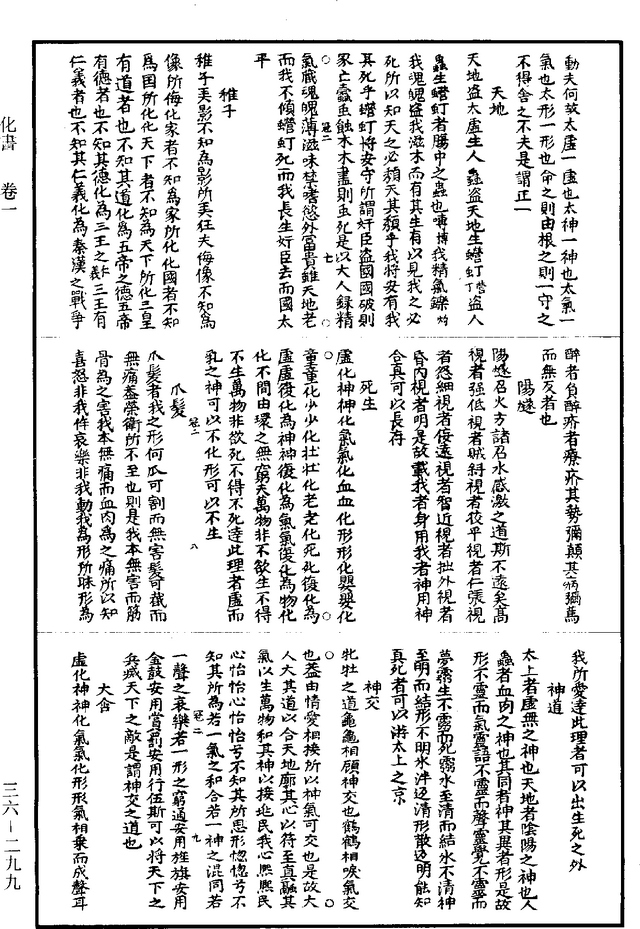 動夫何故太虛一虛也太神一神也太氣一
氣也太形一形也命之則由根之則一守之
不得舍之不失是謂正一
天地
天地盜太虛生人蟲盜天地生蟾虰盜人
蟲生蟾虰者腸中之蟲也嘬我精氣鑠
我魂魄盜我滋味而有其生有以見我之必
死所以知天之必頹天其頹乎我將安有我
其死乎蟾虰將安守所謂奸臣盜國國破則
家亡蠹虫蝕木木盡則虫死是以大人錄精
氣藏魂魄薄滋味禁嗜慾外富貴雖天地老
而我不傾蟾虰死而我長生奸臣去而國太
平
稚子
稚子弄影不知為影所弄狂夫侮像不知為
像所侮化家者不知為家所化化國者不知
為國所化化天下者不知為天下所化三皇
有道者也不知其道化為五帝之德五帝
有德者也不知其德化為三王之仁義三王有
仁義者也不知其仁義化為秦漢之戰爭
醉者負醉疥者療疥其勢彌顛其病彌篤
而無反者也
陽燧
陽燧召火方諸召水感激之道斯不遠矣高
視者强低視者賊斜視者狡平視者仁張視
者怒細視者佞遠視者智近視者拙外視者
昏內視者明是故載我者身用我者神用神
合真可以長存
死生
虛化神神化氣氣化血血化形形化嬰嬰化
童童化少少化壯壯化老老化死死復化為
虛虛復化為神神復化為氣氣復化為物化
化不間由環之無窮夫萬物非不欲生不得
不生萬物非欲死不得不死達此理者虛而
乳之神可以不化形可以不生
爪髮
爪髮者我之形何爪可割而無害髮可截而
無痛蓋榮衛所不至也則是我本無害而筋
骨為之害我本無痛而血肉為之痛所以知
喜怒非我作哀樂非我動我為形所昧形為
我所愛達此理者可以出生死之外
神道
太上者虛無之神也天地者陰陽之神也人
蟲者血肉之神也其同者神其異者形是故
形不靈而氣靈語不靈而聲靈覺不靈而
夢靈生不靈而死靈水至清而結氷不清神
至明而結形不明氷泮返清形散返明能知
真死者可以游太上之京
神交
牝牡之道龜龜相顧神交也鶴鶴相唳氣交
也蓋由情愛相接所以神氣可交也是故大
人大其道以合天地廓其心以符至真融其
氣以生萬物和其神以接兆民我心熙熙民
心怡怡心怡怡兮不知其所思形惚惚兮不
知其所為若一氣之和合若一神之混同若
一聲之哀樂若一形之窮通安用旌旗安用
金鼓安用賞罰安用行伍斯可以將天下之
兵滅天下之敵是謂神交之道也
大含
虛化神神化氣氣化形形氣相乘而成聲耳
化書　卷一
三六—二九九